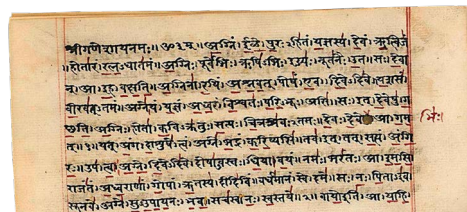 श्रीगणेशायनमः॥ॐ३म्॥अग्निं।ईळे।पुरःऽहितं।यज्ञस्य।देवं।ऋत्विजं
।होतारं।रत्नऽधातमं॥अग्निः।पूर्वेभिः।ऋषिऽभिः।ईड्यः।नूतनैः।उत।सः।देवा
न्।आ।इह।वक्षति॥अग्निना।रयिं।अश्नवत्।पोषं।एव।दिवेऽदिवे।यशसं
वीरवत्ऽतमं॥अग्ने।यं।यज्ञं।अध्वरं।विश्वतः।परिऽभूः।असि।सः।इत्।देवेषु।ग
च्छति॥अग्निः।होता।कविऽक्रतुः।सत्यः।चित्रश्रवःऽतमः।देवः।देवे।आ।गम
भिः।
त्॥१॥यत्।अंग।दाशुषे।त्वं।अग्ने।भद्रं।करिष्यसि।तव।इत्।तत्।सत्यं।अंगि
रः॥उप।त्वा।अग्ने।दिवेऽदिवे।दोषाऽवस्तः।धिया।वयं।नमः।भरंतः।आ।इमसि
राजंतं।अध्वराणां।गोपां।ऋतस्य।दीदिविं।वर्धमानं।स्वे।दमे॥सः।नः।पिताऽइव
सूनवे।अग्ने।सुऽउपायनः।भव।सचस्व।नः।स्वस्तये॥२॥वायोइति।आ।याहि।